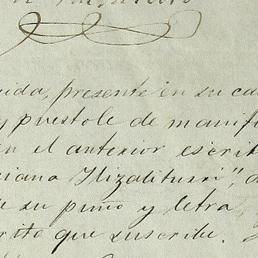 ida, presente en su ca
y puestole de manif
en el anterior escri
iana Ilizaliturri",
e su puño y letra,
rito que suscribe.